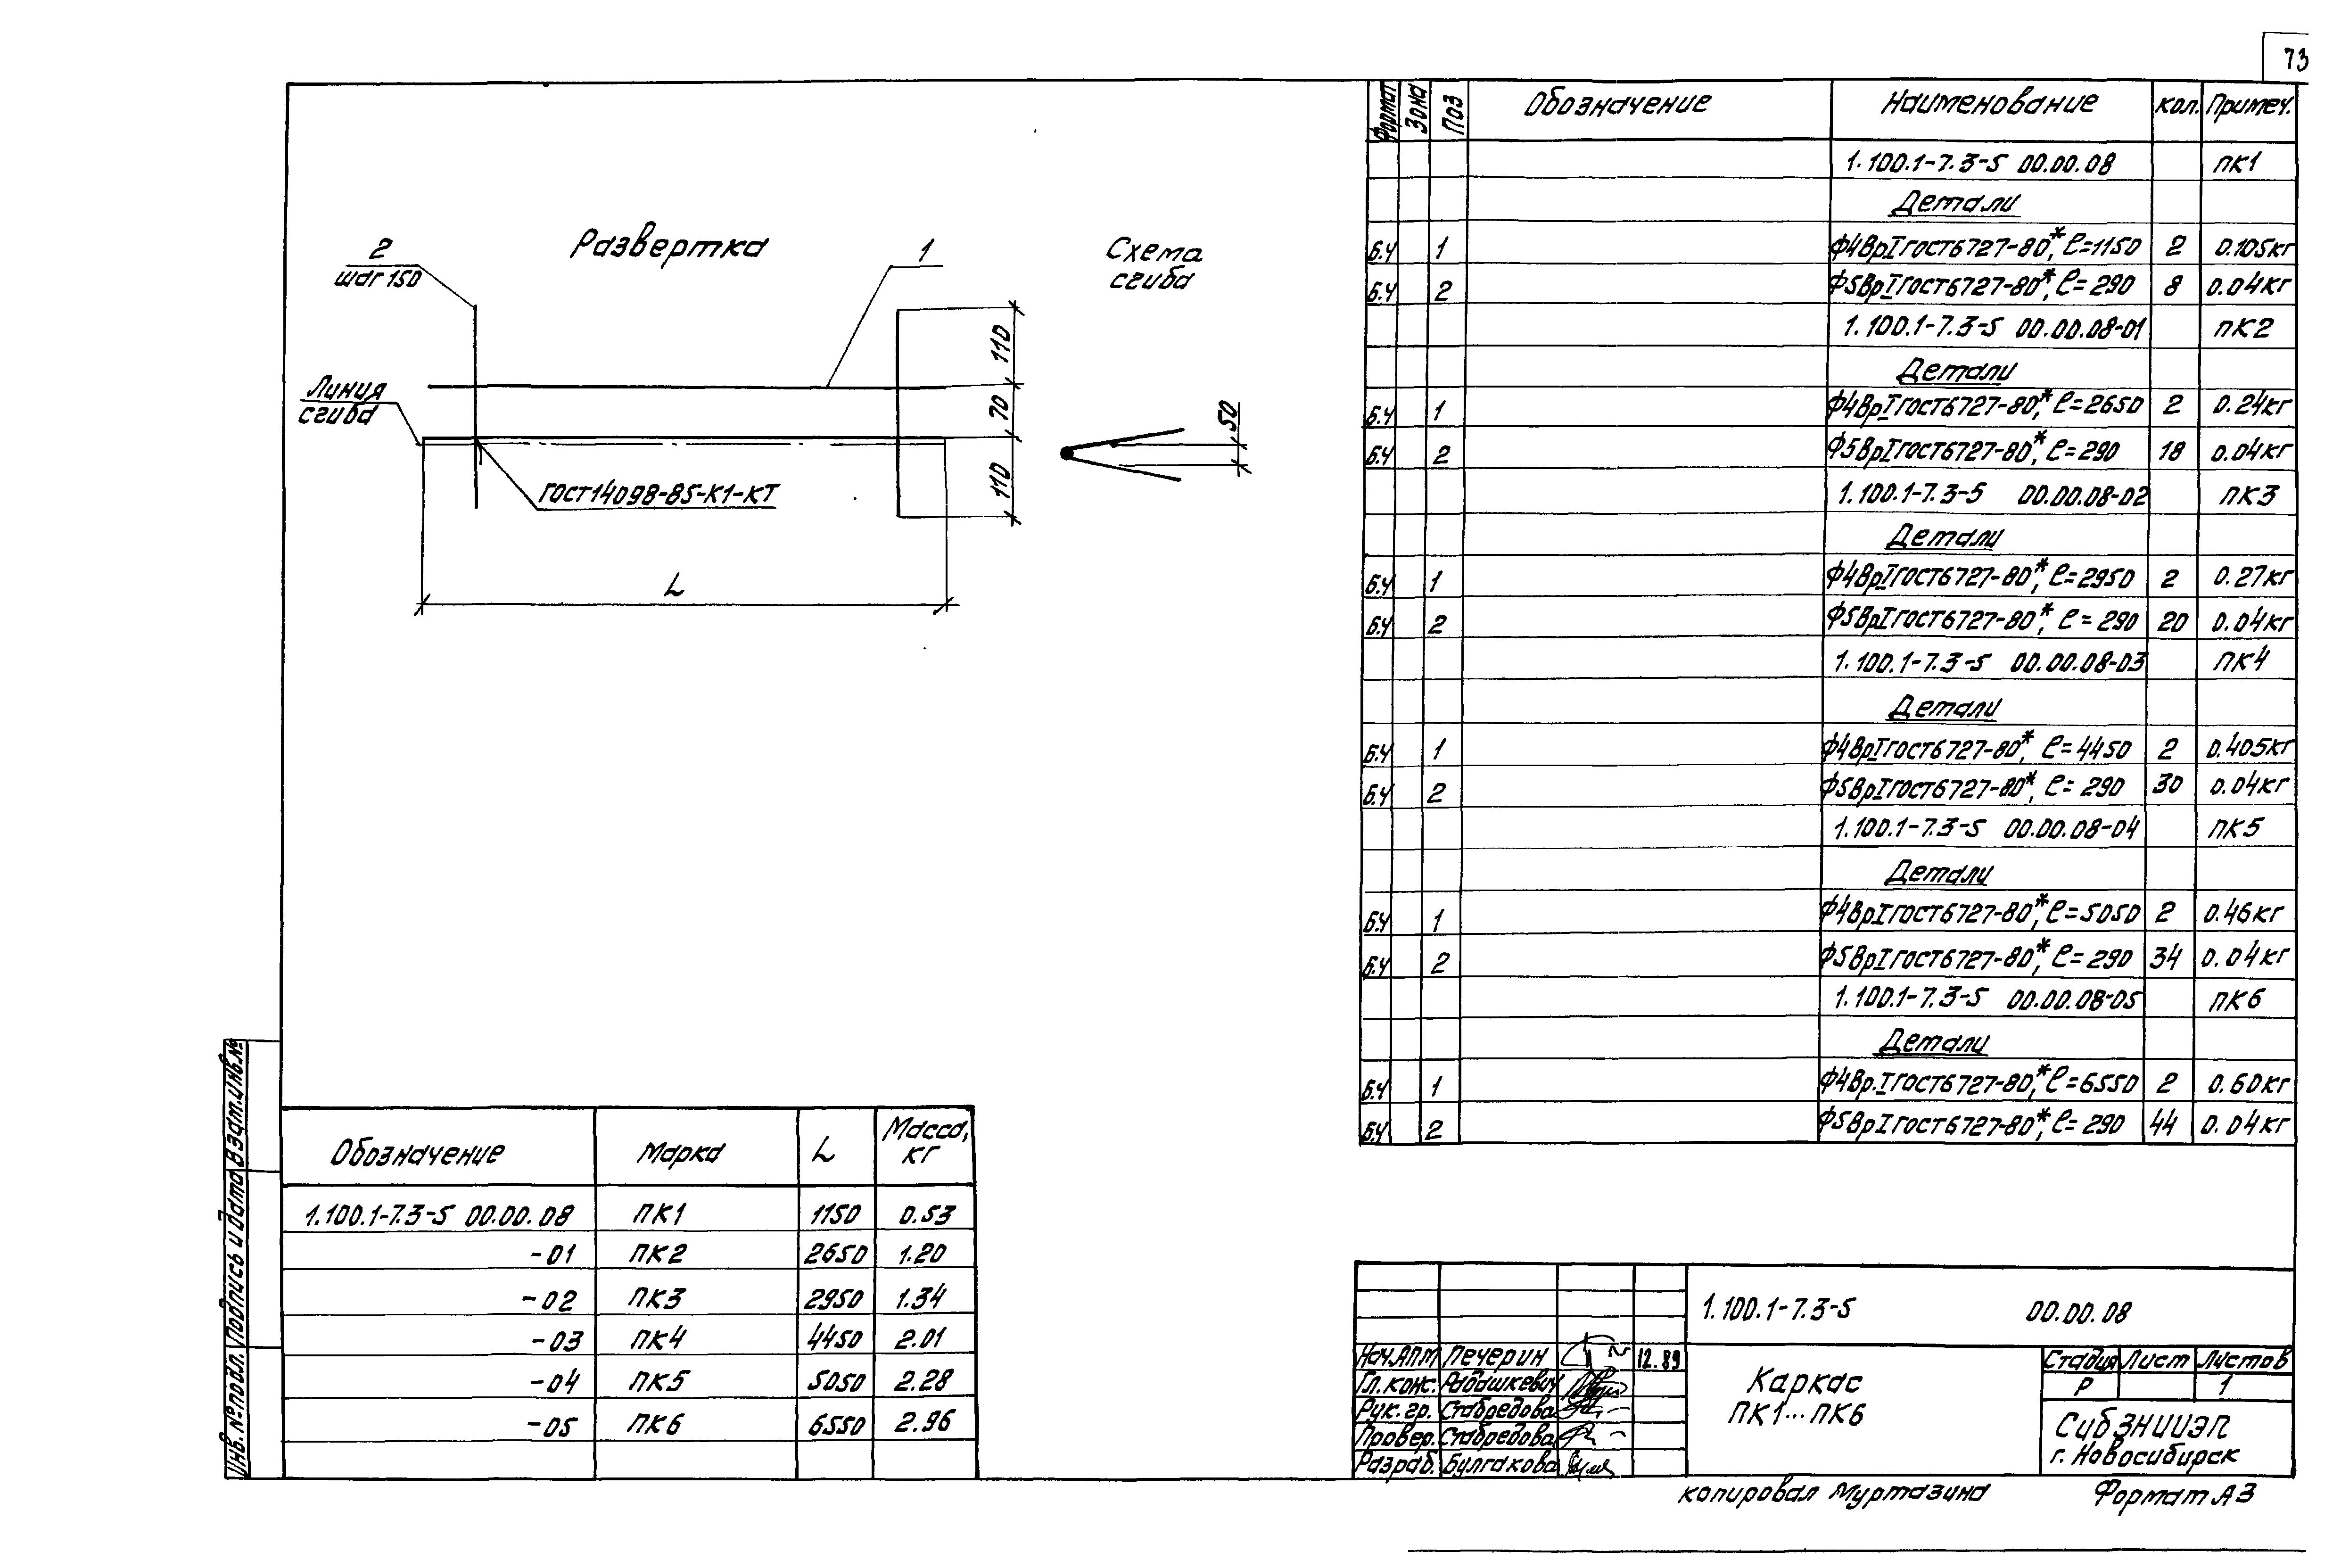 73
Развертка
Схема
сгиба
2
шаг 150
1
Линия
сгиба
110
70
110
50
ГОСТ14098-85-К1-КТ
L
Формат Зона Поз Обозначение Наименование кол. Примеч.
1.100.1-7.3-5 00.00.08 ПК1
Детали
Б.Ч 1 Ф4ВрIГОСТ6727-80*, ℓ=1150 2 0.105кг
Б.Ч 2 Ф5ВрIГОСТ6727-80*, ℓ=290 8 0.04кг
1.100.1-7.3-5 00.00.08-01 ПК2
Детали
Б.Ч 1 Ф4ВрIГОСТ6727-80*, ℓ=2650 2 0.24кг
Б.Ч 2 Ф5ВрIГОСТ6727-80*, ℓ=290 18 0.04кг
1.100.1-7.3-5 00.00.08-02 ПК3
Детали
Б.Ч 1 Ф4ВрIГОСТ6727-80*, ℓ=2950 2 0.27кг
Б.Ч 2 Ф5ВрIГОСТ6727-80*, ℓ=290 20 0.04кг
1.100.1-7.3-5 00.00.08-03 ПК4
Детали
Б.Ч 1 Ф4ВрIГОСТ6727-80*, ℓ=4450 2 0.405кг
Б.Ч 2 Ф5ВрIГОСТ6727-80*, ℓ=290 30 0.04кг
1.100.1-7.3-5 00.00.08-04 ПК5
Детали
Б.Ч 1 Ф4ВрIГОСТ6727-80*, ℓ=5050 2 0.46кг
Б.Ч 2 Ф5ВрIГОСТ6727-80*, ℓ=290 34 0.04кг
1.100.1-7.3-5 00.00.08-05 ПК6
Детали
Б.Ч 1 Ф4Вр.IГОСТ6727-80*, ℓ=6550 2 0.60кг
Б.Ч 2 Ф5ВрIГОСТ6727-80*, ℓ=290 44 0.04кг
Обозначение Марка L Масса, кг
1.100.1-7.3-5 00.00.08 ПК1 1150 0.53
-01 ПК2 2650 1.20
-02 ПК3 2950 1.34
-03 ПК4 4450 2.01
-04 ПК5 5050 2.28
-05 ПК6 6550 2.96
Инв.№подл. Подпись и дата Взам.инв.№
1.100.1-7.3-5 00.00.08
Нач.АПМ Печерин 12.89
Гл.конс. Рабашкевич
Рук.гр. Стабредова
Провер. Стабредова
Разраб. Булгакова
Каркас
ПК1...ПК6
Стадия Лист Листов
Р 1
СибЗНИИЭП
г. Новосибирск
копировал Муртазина Формат А3